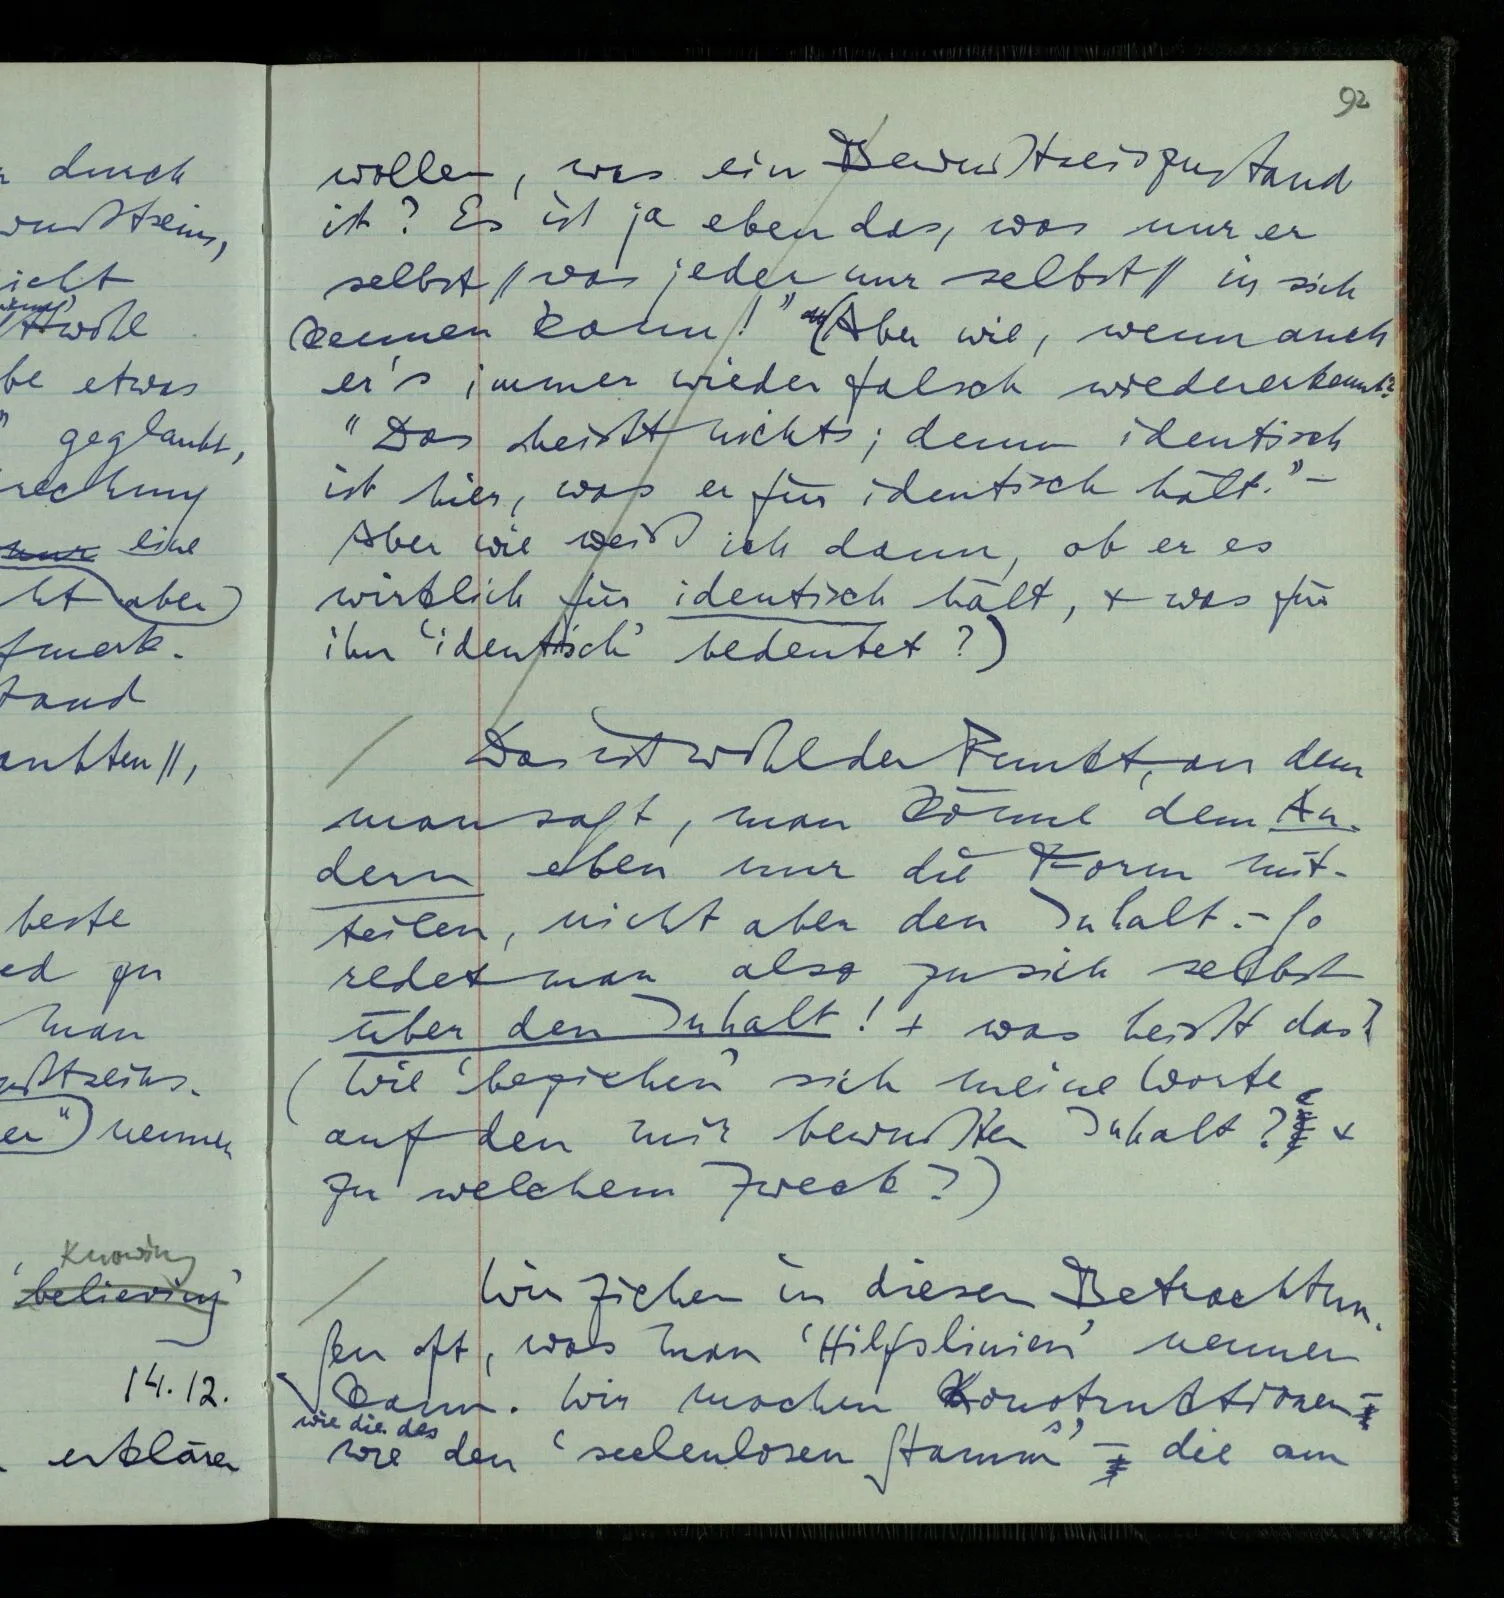 durch
wußtseins,
nicht
wohl
be etwas
" geglaubt,
rechnung
nur eine
ht aber)
fmerk-
tand
aubten//,
beste
ed zu
man
ußtseins-
er") nennen
Knowing
'believing'
14.12.
erklären
92
wollen, was ein Bewußtseiszustand
ist? Es ist ja eben das, was nur er
selbst //was jeder nur selbst// in sich
kennen kann!" (Aber wie, wenn auch
er's immer wieder falsch wiedererkennt?
"Das heißt nichts; denn identisch
ist hier, was er für identisch hält." –
Aber wie weiß ich dann, ob er es
wirklich für identisch hält, + was für
ihn 'identisch' bedeutet?)
/ Das ist wohl der Punkt, an dem
man sagt, man könne dem An-
dern eben nur die Form mit-
teilen, nicht aber den Inhalt. – So
redet man also zu sich selbst
über den Inhalt! + was heißt das?
(Wie 'beziehen' sich meine Worte
auf den mir bewußten Inhalt? +
zu welchem Zweck?)
/ Wir ziehen in diesen Betrachtun-
gen oft, was man 'Hilfslinien' nennen
kann. Wir machen Konstruktionen
wie die des
wie den 'seelenlosen Stamms' – die am